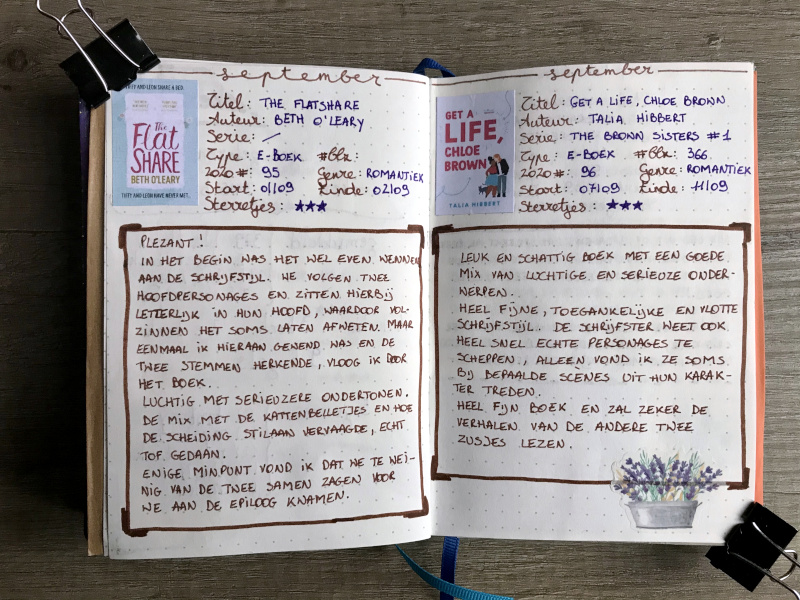 september
TIFFY AND LEON SHARE A BED.
The
Flat
SHARE
BETH O'LEARY
TIFFY AND LEON HAVE NEVER MET...
Titel: THE FLATSHARE
Auteur: BETH O'LEARY
Serie: /
Type: E-BOEK #blz:
2020#: 95 Genre: ROMANTIEK
Start: 01/09 Einde: 02/09
Sterretjes: ★★★
PLEZANT!
IN HET BEGIN WAS HET WEL EVEN WENNEN
AAN DE SCHRIJFSTIJL. WE VOLGEN TWEE
HOOFDPERSONAGES EN ZITTEN HIERBIJ
LETTERLIJK IN HUN HOOFD, WAARDOOR VOL-
ZINNEN HET SOMS LATEN AFWETEN. MAAR
EENMAAL IK HIERAAN GEWEND WAS EN DE
TWEE STEMMEN HERKENDE, VLOOG IK DOOR
HET BOEK.
LUCHTIG MET SERIEUZERE ONDERTONEN.
DE MIX MET DE KATTENBELLETJES EN HOE
DE SCHEIDING STILAAN VERVAAGDE, ECHT
TOF GEDAAN.
ENIGE MINPUNT VOND IK DAT WE TE WEI-
NIG VAN DE TWEE SAMEN ZAGEN VOOR
WE AAN DE EPILOOG KWAMEN.
september
GET A
LIFE,
CHLOE
BROWN
TALIA HIBBERT
Titel: GET A LIFE, CHLOE BROWN
Auteur: TALIA HIBBERT
Serie: THE BROWN SISTERS #1
Type: E-BOEK #blz: 366
2020#: 96 Genre: ROMANTIEK
Start: 07/09 Einde: 11/09
Sterretjes: ★★★
LEUK EN SCHATTIG BOEK MET EEN GOEDE
MIX VAN LUCHTIGE EN SERIEUZE ONDER-
WERPEN.
HEEL FIJNE, TOEGANKELIJKE EN VLOTTE
SCHRIJFSTIJL. DE SCHRIJFSTER WEET OOK
HEEL SNEL ECHTE PERSONAGES TE
SCHEPPEN, ALLEEN VOND IK ZE SOMS
BIJ BEPAALDE SCÈNES UIT HUN KARAK-
TER TREDEN.
HEEL FIJN BOEK EN ZAL ZEKER DE
VERHALEN VAN DE ANDERE TWEE
ZUSJES LEZEN.